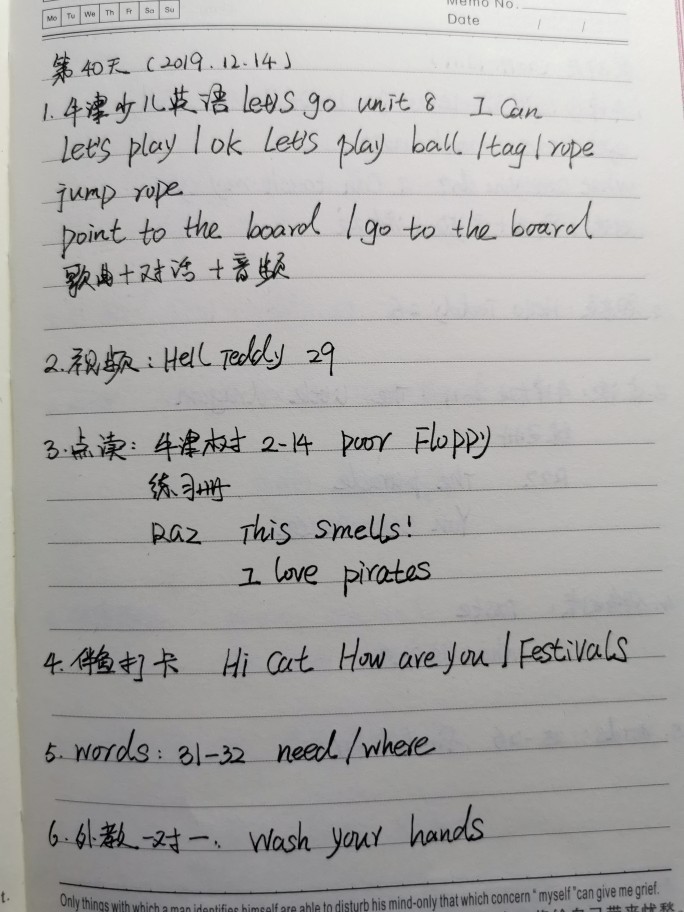 Mo Tu We Th Fr Sa Su
Memo No.
Date / /
第40天（2019.12.14）
1.牛津少儿英语 Let's go unit 8 I Can
Let's play / ok Let's play ball / tag / rope
jump rope
point to the board / go to the board
歌曲+对话+音频
2.视频：Hell Teddy 29
3.点读：牛津树 2-14 poor Floppy
练习册
Raz This smells!
I love pirates
4.伴鱼打卡 Hi Cat How are you / Festivals
5.words：31-32 need/where
6.外教一对一. Wash your hands
t.
Only things with which a man identifies himself are able to disturb his mind-only that which concern "myself" can give me grief.